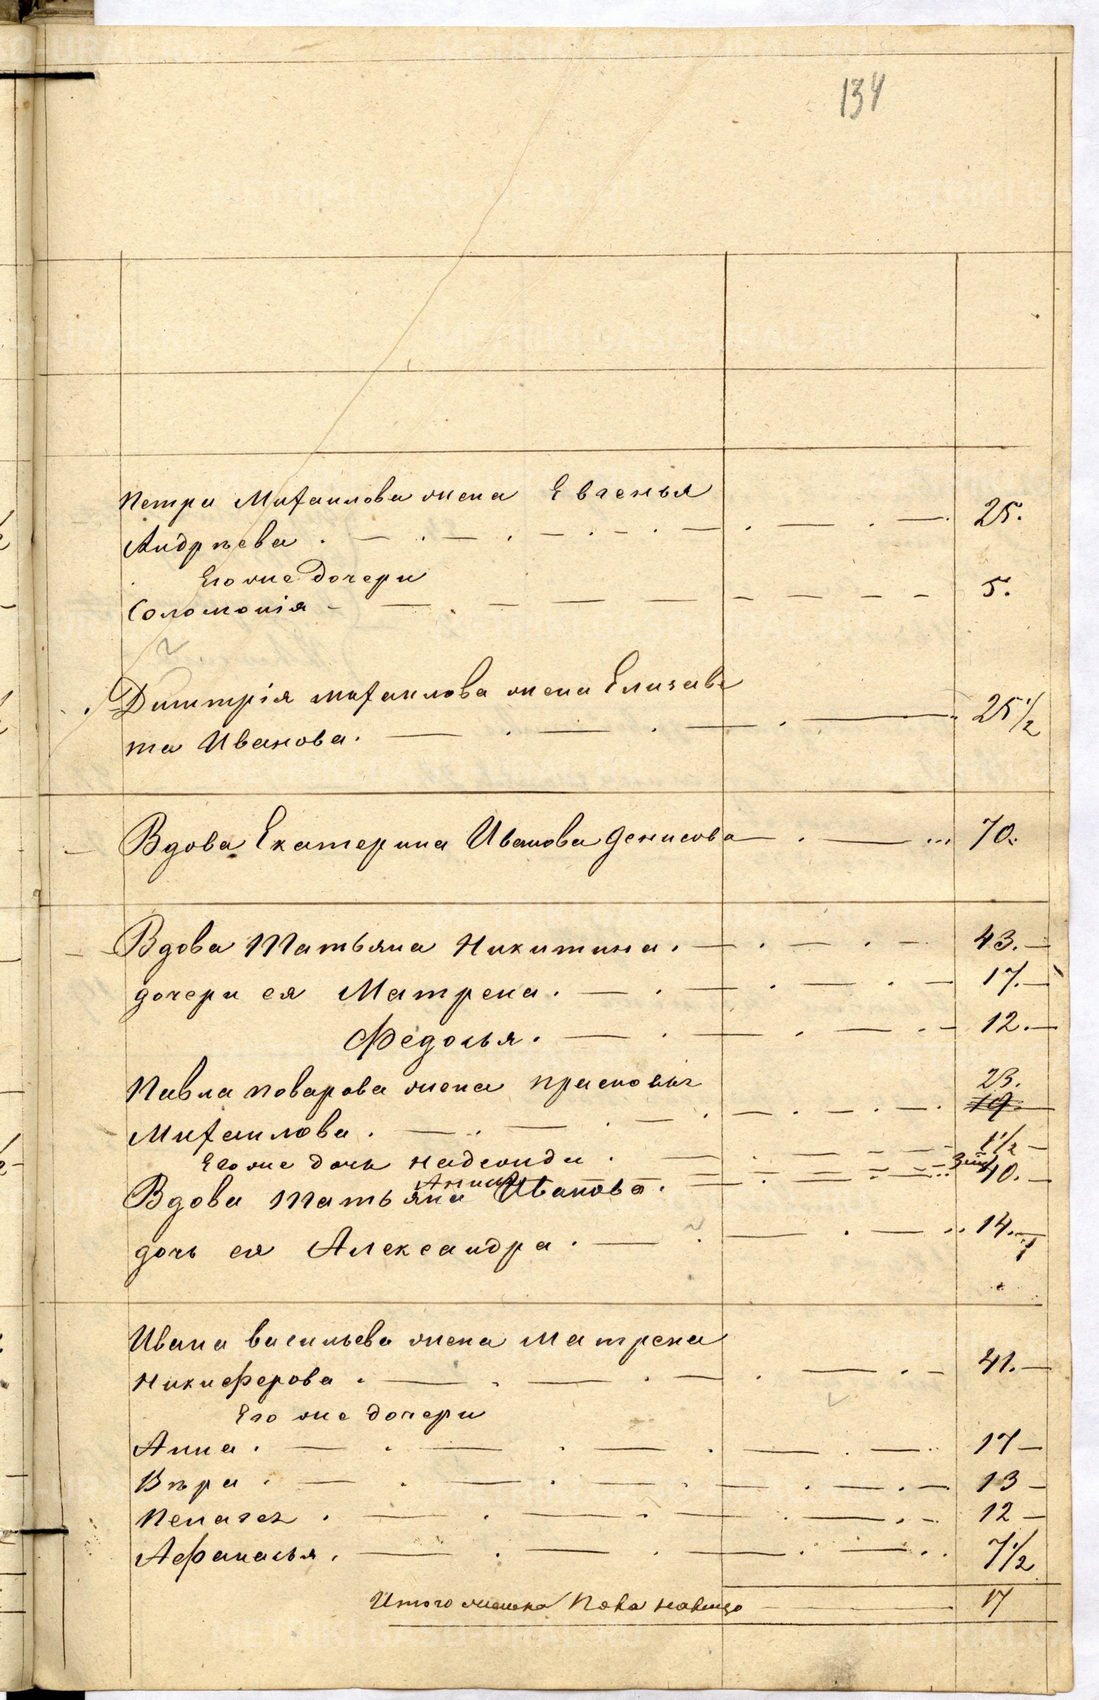 134
Петра Михаилова жена Евгенья 25.
Андрѣева
Его же дочери
Соломонія 5.
Дмитрія михаилова жена Елизаве
та Иванова. 25 1/2
Вдова Екатерина Иванова Денисова 70.
Вдова Татьяна Никитина. 43.
дочери ея Матрена. 17.
Федосья. 12.
Павла поварова жена прасковья 23.
Михаилова. 19.
Его же дочь надежда. 1 1/2
Анна
Вдова Татьяна Иванова. 40.
дочь ея Александра. 14.
Ивана васильева жена матрена
Никиферова. 41.
Его же дочери
Анна. 17
Вѣра. 13
Пелагея. 12
Афанасья. 7 1/2
Итого женска пола налицо 17